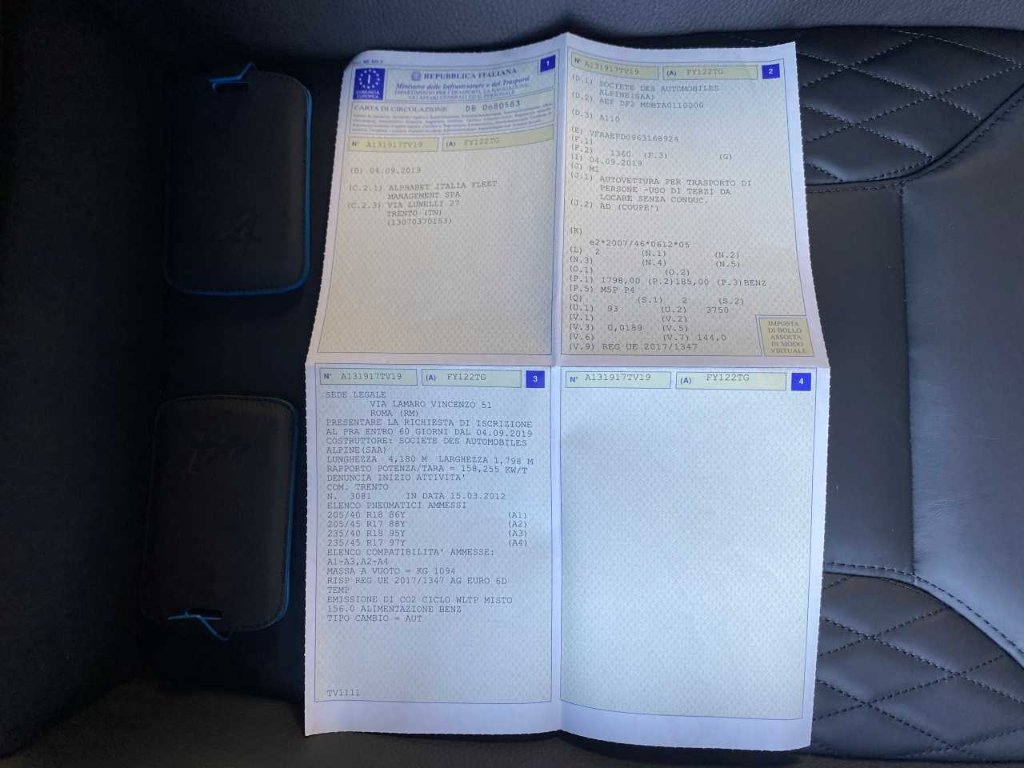 REPUBBLICA ITALIANA
Ministero delle Infrastrutture e dei Trasporti
DIPARTIMENTO PER I TRASPORTI, LA NAVIGAZIONE
I
COMUNITÀ EUROPEA
CARTA DI CIRCOLAZIONE DE 0680583
1
N° A131917TV19 (A) FY122TG
(D) 04.09.2019
(C.2.1) ALPHABET ITALIA FLEET
MANAGEMENT SPA
(C.2.3) VIA LUNELLI 27
TRENTO (TN)
(13070370153)
N° A131917TV19 (A) FY122TG 2
(D.1) SOCIETE DES AUTOMOBILES
ALPINE(SAA)
(D.2) AEF DF2 MDBTA0110000
(D.3) A110
(E) VFAAEFD0963168924
(F.1)
(F.2) 1360 (F.3) (G)
(I) 04.09.2019
(J) M1
(J.1) AUTOVETTURA PER TRASPORTO DI
PERSONE -USO DI TERZI DA
LOCARE SENZA CONDUC.
(J.2) AD (COUPE')
(K)
e2*2007/46*0612*05
(L) 2 (N.1) (N.2)
(N.3) (N.4) (N.5)
(O.1) (O.2)
(P.1) 1798,00 (P.2)185,00 (P.3)BENZ
(P.5) M5P P4
(Q) (S.1) 2 (S.2)
(U.1) 93 (U.2) 3750
(V.1) (V.2)
(V.3) 0,0189 (V.5)
(V.6) (V.7) 144,0
(V.9) REG UE 2017/1347
IMPOSTA
DI BOLLO
ASSOLTA
IN MODO
VIRTUALE
N° A131917TV19 (A) FY122TG 3
SEDE LEGALE
VIA LAMARO VINCENZO 51
ROMA (RM)
PRESENTARE LA RICHIESTA DI ISCRIZIONE
AL PRA ENTRO 60 GIORNI DAL 04.09.2019
COSTRUTTORE: SOCIETE DES AUTOMOBILES
ALPINE(SAA)
LUNGHEZZA 4,180 M LARGHEZZA 1,798 M
RAPPORTO POTENZA/TARA = 158,255 KW/T
DENUNCIA INIZIO ATTIVITA'
COM. TRENTO
N. 3081 IN DATA 15.03.2012
ELENCO PNEUMATICI AMMESSI
205/40 R18 86Y (A1)
205/45 R17 88Y (A2)
235/40 R18 95Y (A3)
235/45 R17 97Y (A4)
ELENCO COMPATIBILITA' AMMESSE:
A1-A3,A2-A4
MASSA A VUOTO = KG 1094
RISP REG UE 2017/1347 AG EURO 6D
TEMP
EMISSIONE DI CO2 CICLO WLTP MISTO
156.0 ALIMENTAZIONE BENZ
TIPO CAMBIO = AUT
TV1111
N° A131917TV19 (A) FY122TG 4